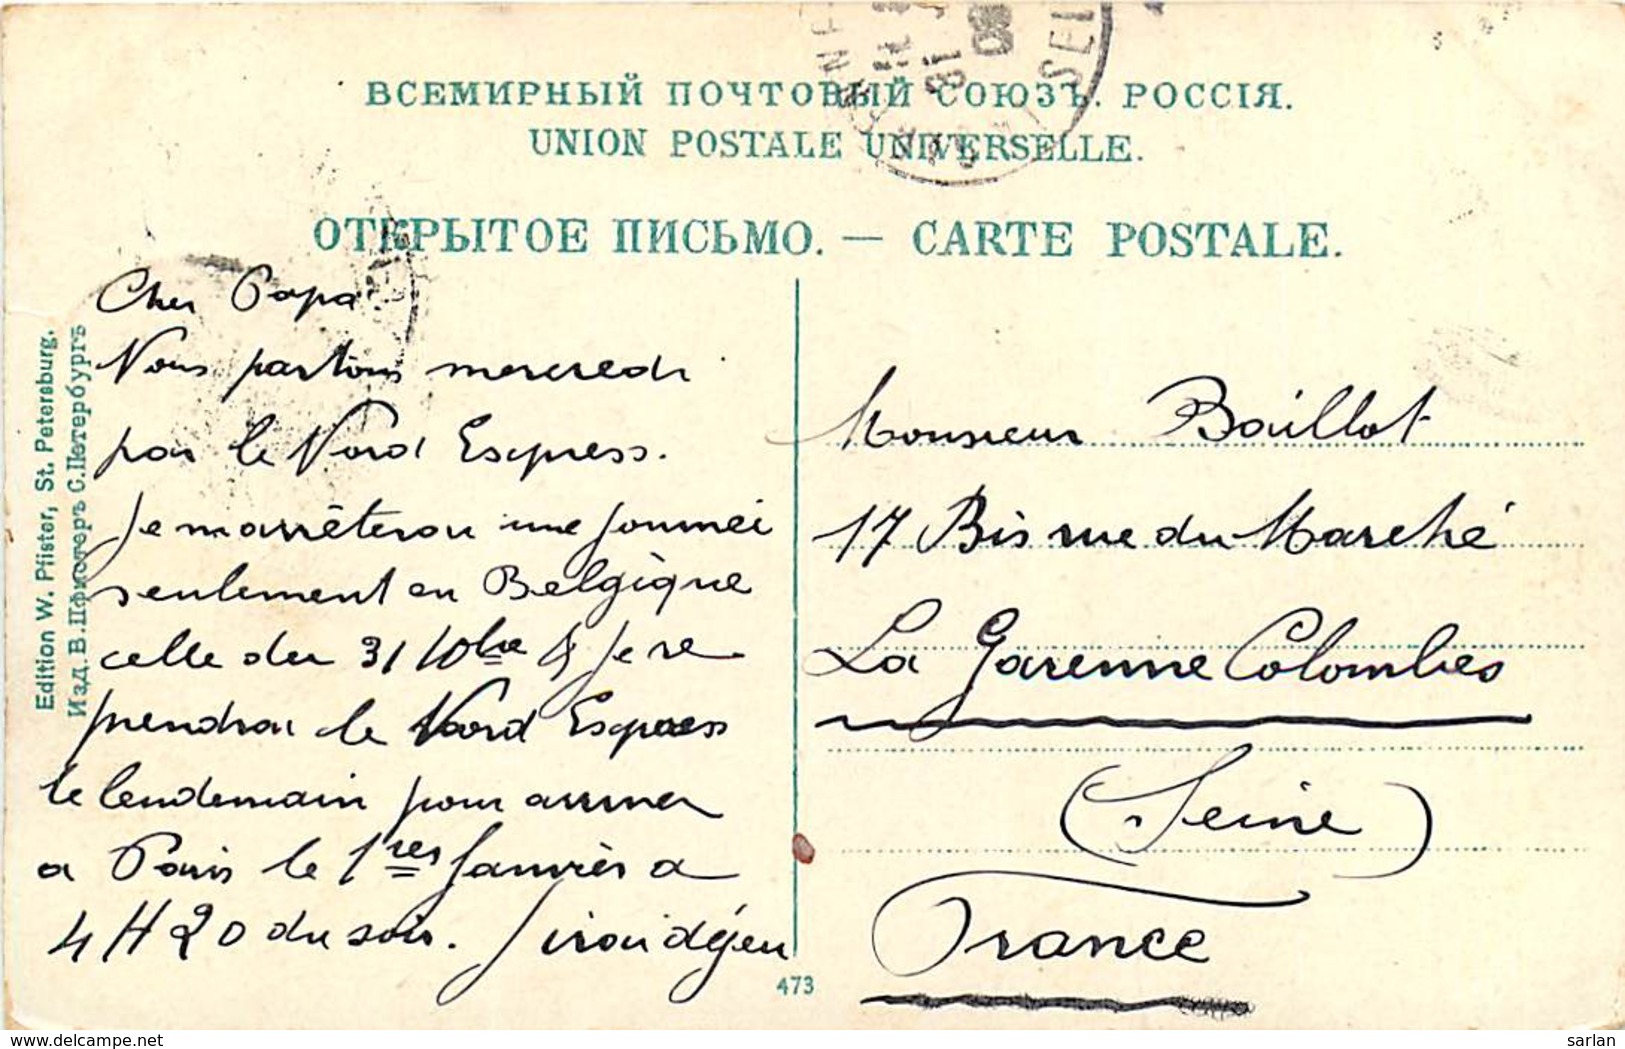 ВСЕМИРНЫЙ ПОЧТОВЫЙ СОЮЗЪ. РОССІЯ.
UNION POSTALE UNIVERSELLE.
ОТКРЫТОЕ ПИСЬМО. — CARTE POSTALE.
Edition W. Pfister, St. Petersburg.
Изд. В. Пфистеръ С.Петербургъ
Cher Papa
Nous partons mercredi
par le Nord Express.
Je m'arrêterai une journée
seulement en Belgique
celle du 31 10bre & je re
prendrai le Nord Express
le lendemain pour arriver
a Paris le 1res Janvier a
4 H 20 du soir. J'irai déjeu
Monsieur Baillot
17 Bis rue du Marché
La Garenne Colombes
(Seine)
France
473
delcampe.net
sarlan